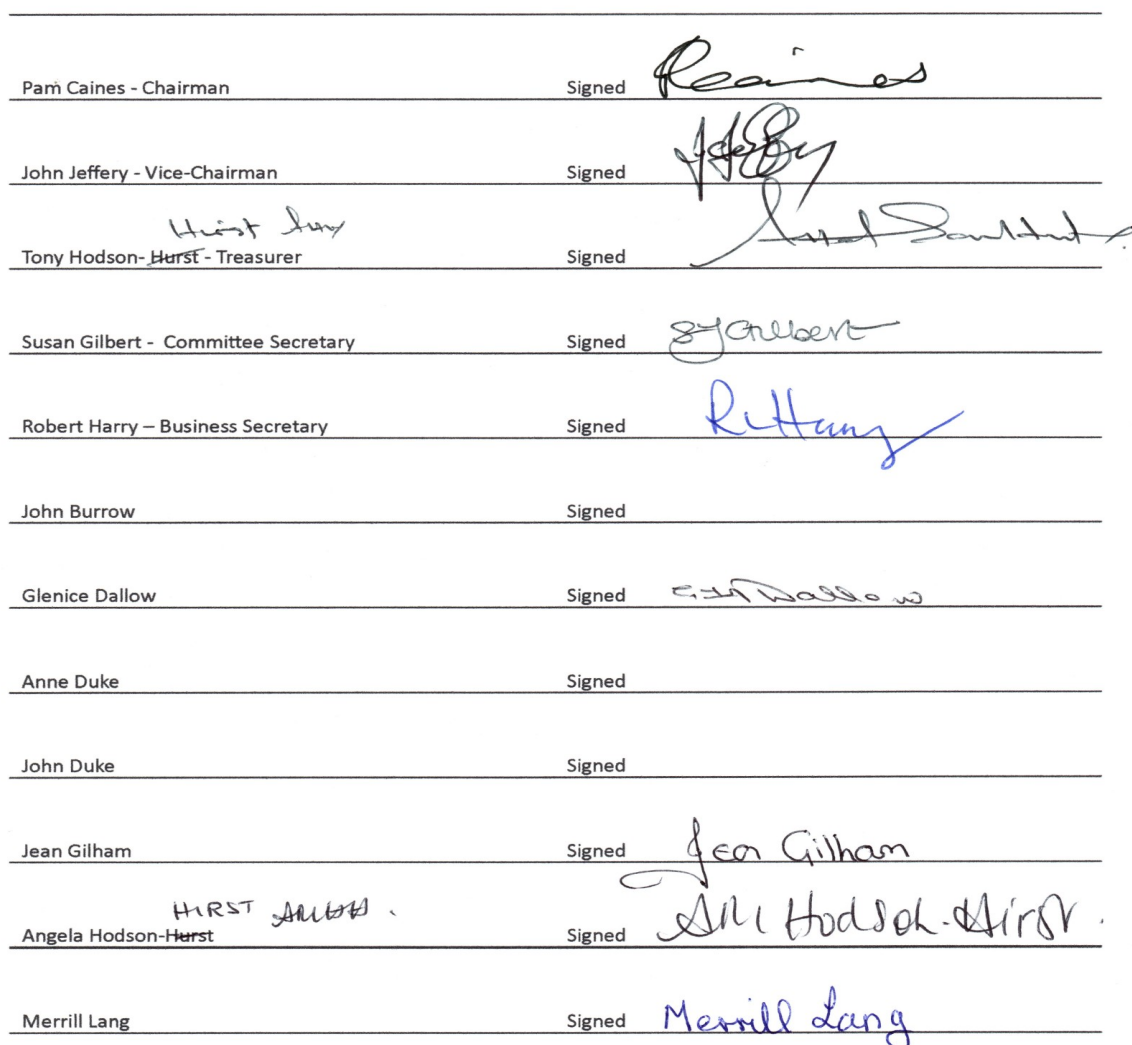 Pam Caines - Chairman Signed
John Jeffery - Vice-Chairman Signed
Hirst
Tony Hodson- Hurst - Treasurer Signed
Susan Gilbert - Committee Secretary Signed SJGilbert
Robert Harry – Business Secretary Signed
John Burrow Signed
Glenice Dallow Signed Dallow
Anne Duke Signed
John Duke Signed
Jean Gilham Signed Jean Gilham
HIRST AMHH.
Angela Hodson-Hurst Signed AM Hodson-Hirst.
Merrill Lang Signed Merrill Lang